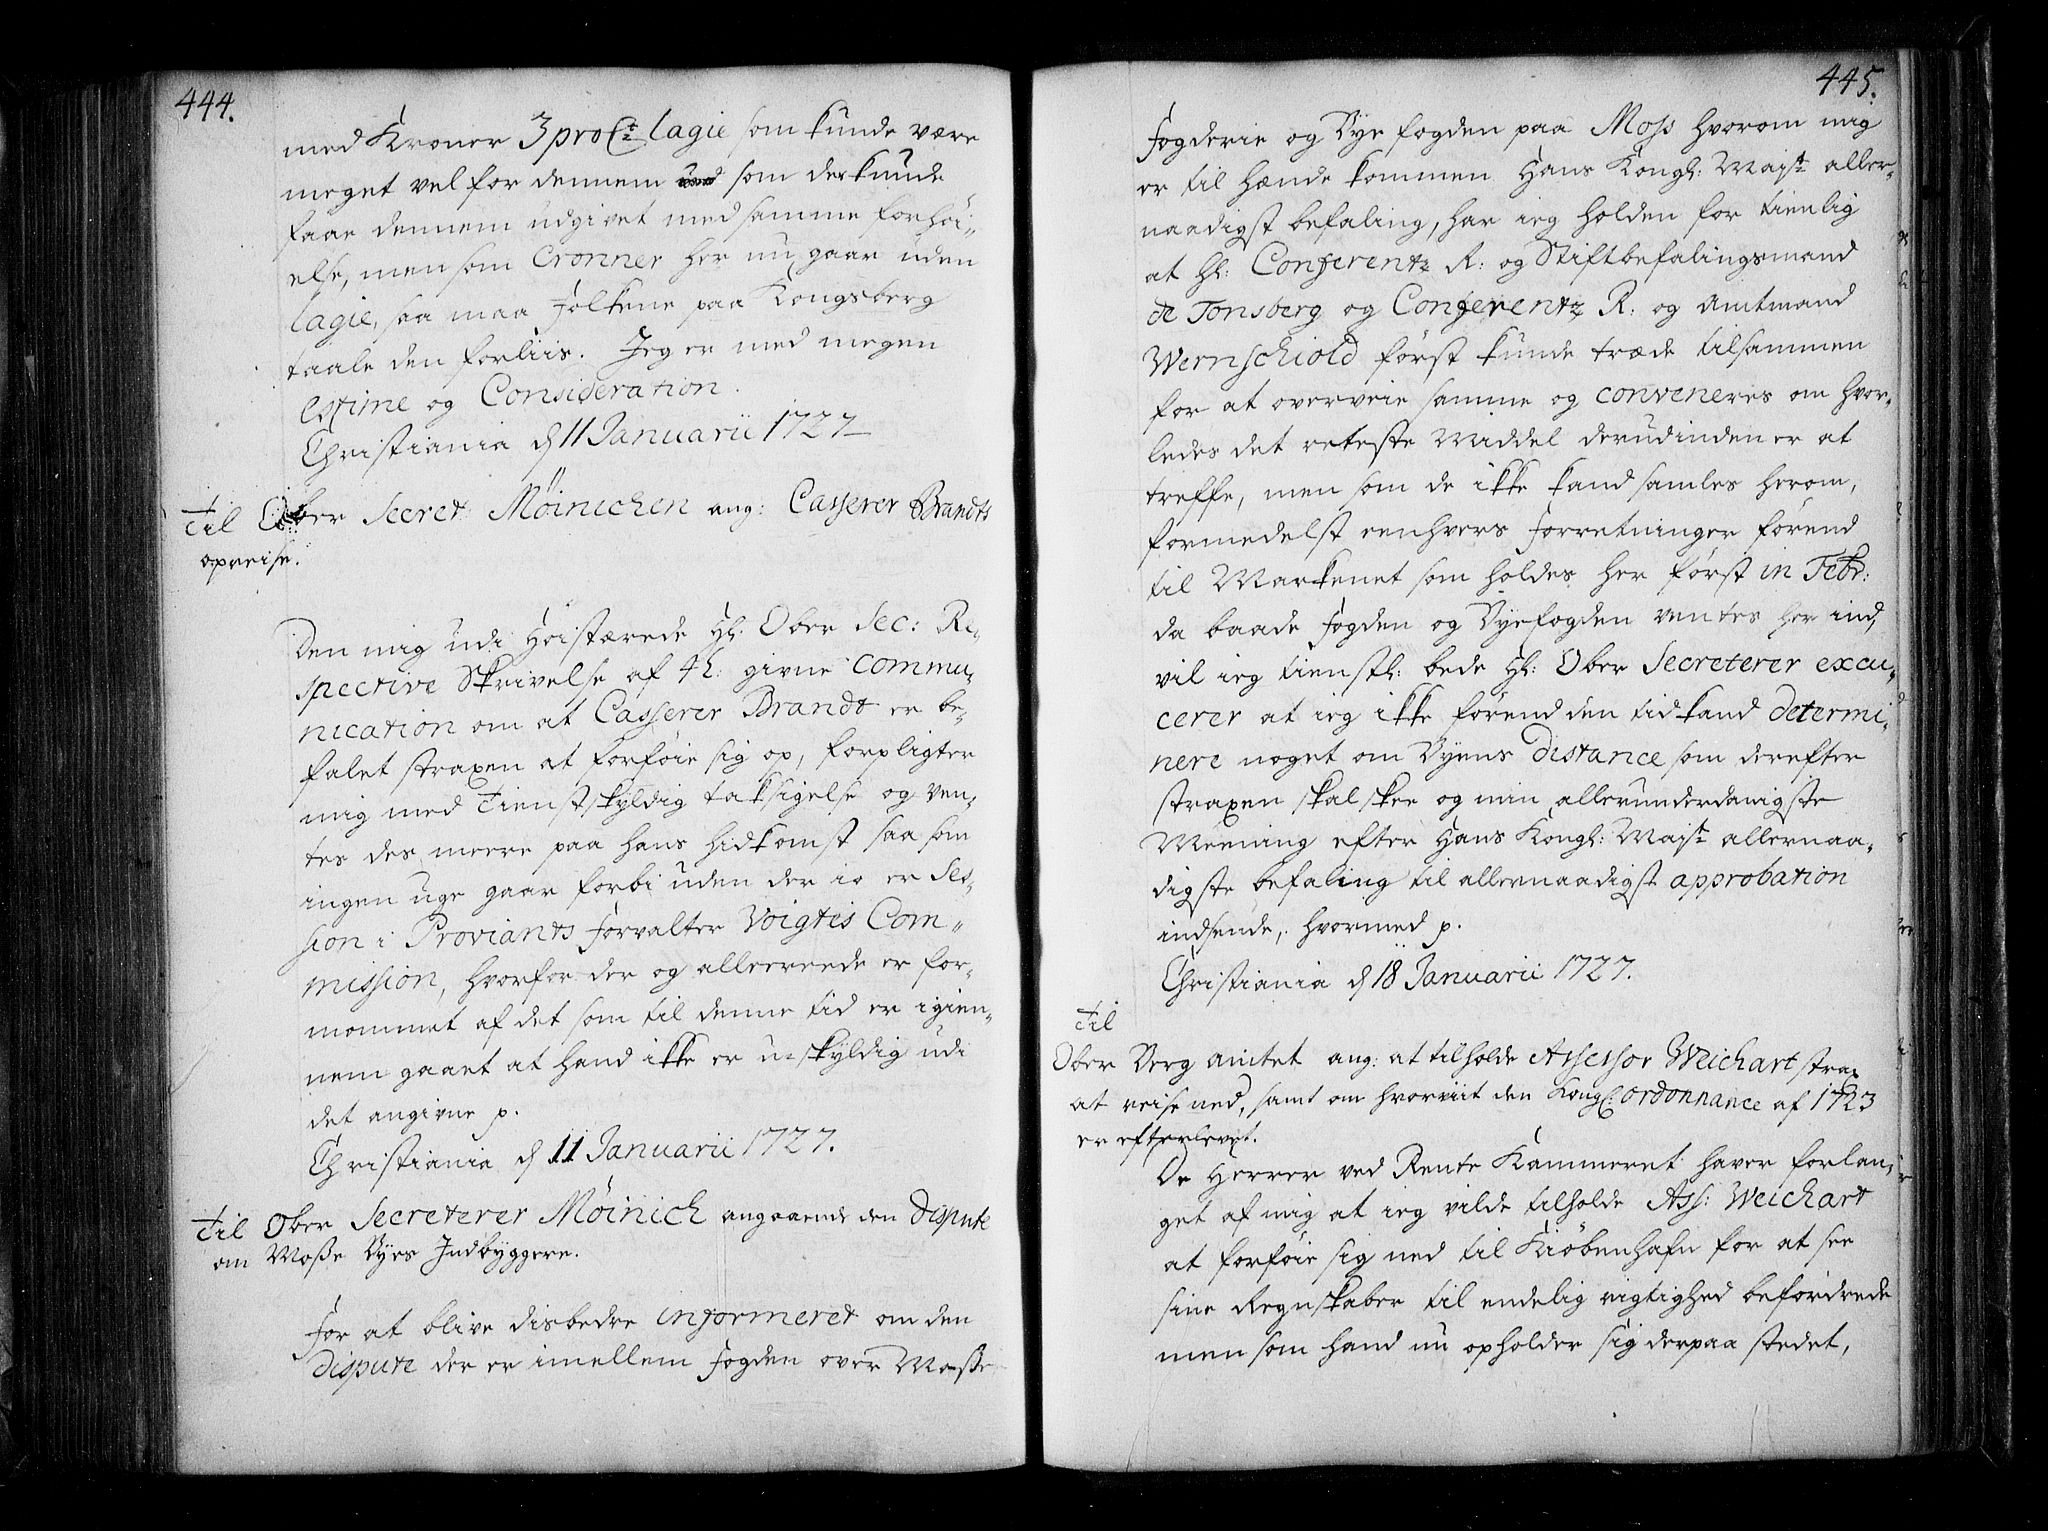 444.
med Kroner 3 pro Ct lagie som kunde være
meget vel for dennem som der kunde
faae dennem udgivet med samme forhöi-
else, men som Cronner her nu gaar uden
lagie, saa maa Folkene paa Kongsberg
taale den forliis. Jeg er med megen
estime og Consideration.
Christiania d 11 Januarii 1727
Til Ober Secret Möinichen ang: Casserer Brandts
opreise.
Den mig udi Höistærede Hr. Ober Sec: Re-
spective Skrivelse af 4 h: givne Commu-
nication om at Casserer Brandt er be-
falet straxen at forföie sig op, forpligter
mig med Tienstskyldig taksigelse og ven-
tes des meere paa hans hidkomst saa som
ingen uge gaar forbi uden der io er Ses-
sion i Proviants Forvalter Voigtes Com-
mission, hvorfor der og allereede er for-
nommet af det som til denne tid er igien-
nem gaaet at hand ikke er uskyldig udi
det angivne p.
Christiania d 11 Januarii 1727.
Til Ober Secreterer Möinich angaaende den Dispute
om Mosse Byes Indbyggere.
For at blive disbedre informeret om den
dispute der er imellem Fogden over Mosse
445.
Fogderie og Byefogden paa Moss hvorom mig
er til hænde kommen Hans Kongl: Majst aller-
naadigst befaling, har ieg holden for tienlig
at Hr: Conferentz R: og Stiftbefalingsmand
de Tonsberg og Conferentz R: og Amtmand
Wernschiold först kunde træde tilsammen
for at overveie samme og conveneres om hvor-
ledes det retteste Middel derudinden er at
treffe, men som de ikke kand samles herom,
formedelst eenhvers Forretninger förend
til Markenet som holdes her först in Febr:
da baade Fogden og Byefogden ventes her ind,
vil ieg tienstl: bede Hr: Ober Secreterer excu-
cerer at ieg ikke förend den tid kand determi-
nere noget om Byens Distance som derefter
straxen skal skee og min allerunderdanigste
Meening efter Hans Kongl: Majst allernaa-
digste befaling til allernaadigst approbation
indsende, hvormed p.
Christiania d 18 Januarii 1727.
Til
Ober Berg Amtet ang: at tilholde Assessor Weichart strax
at reise ned, samt om hvorviit den Kongl: ordonnance af 1723
er efterlevet.
De Herrer ved Rente Kammeret haver forlan-
get af mig at ieg vilde tilholde Ass: Weichart
at forföie sig ned til Kiöbenhafn for at see
sine Regnskaber til endelig rigtighed befordrede
men som hand nu opholder sig der paa stedet,